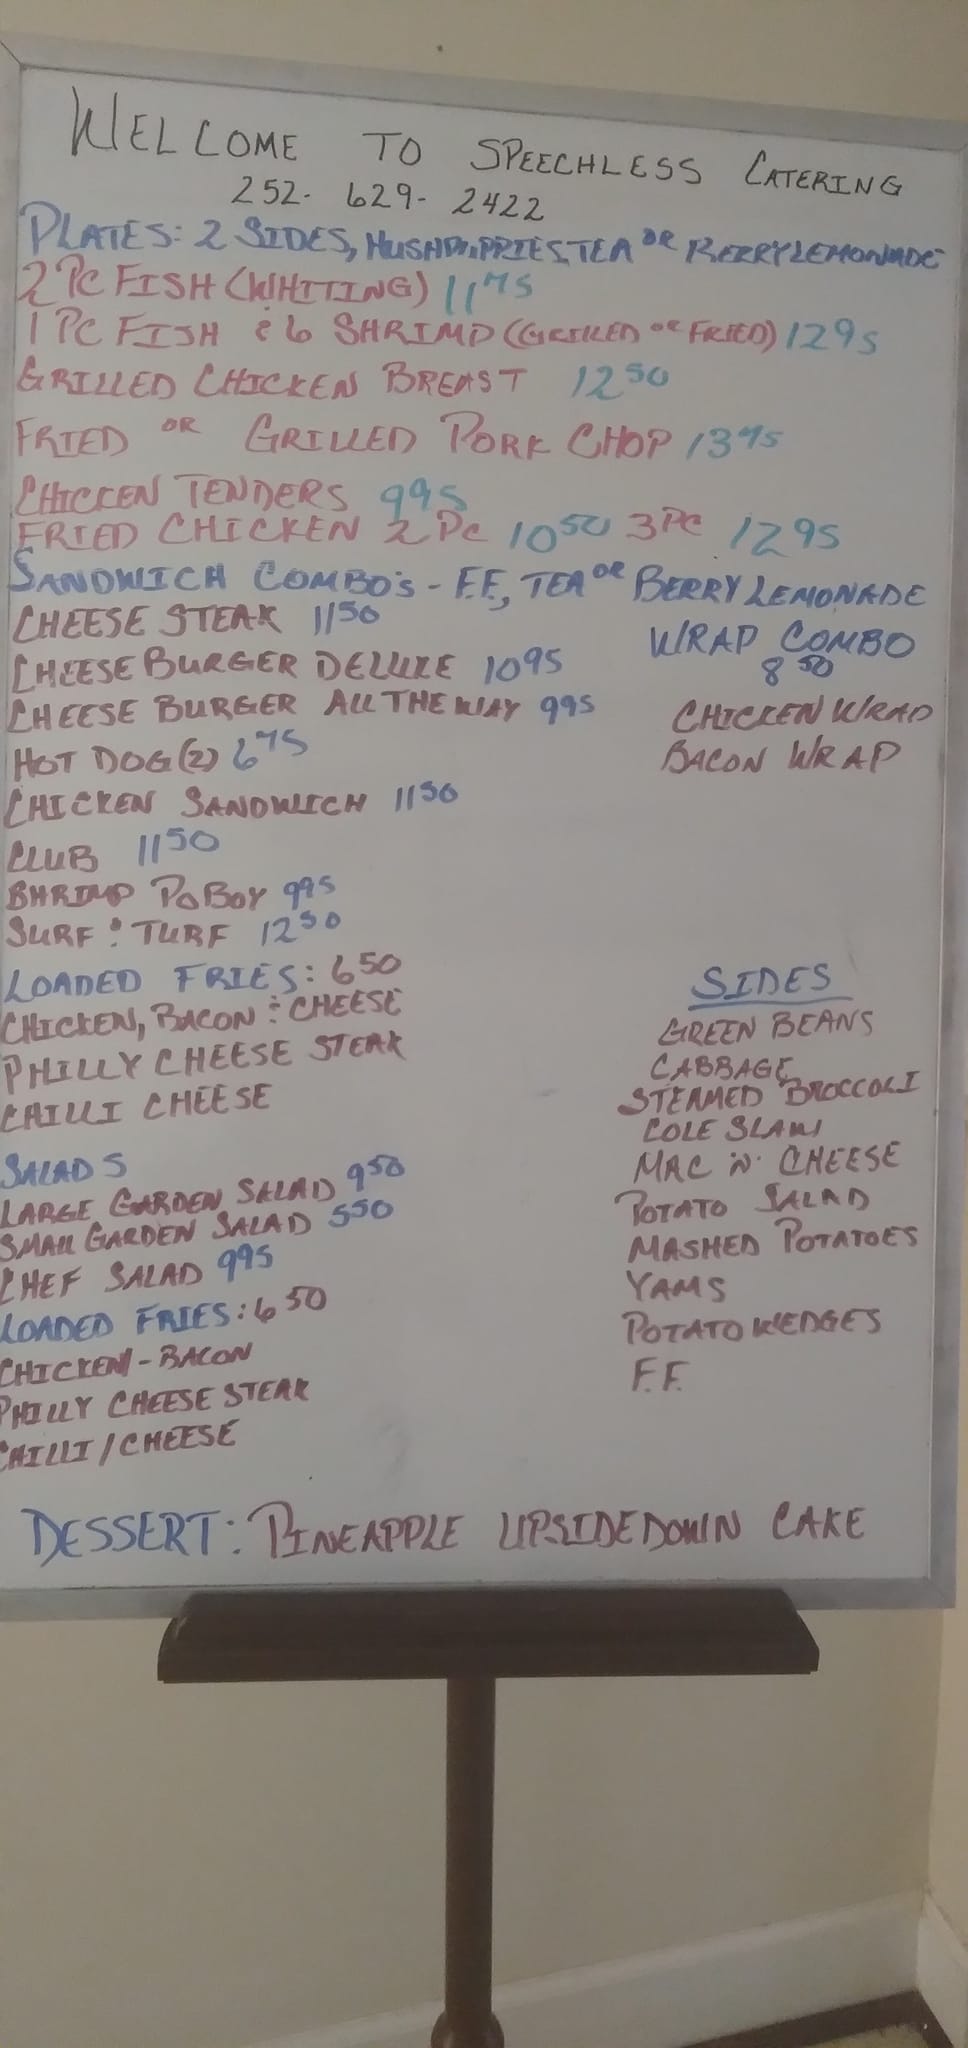 WELCOME TO SPEECHLESS CATERING
252-629-2422
PLATES: 2 SIDES, HUSHPUPPIES, TEA OR BERRY LEMONADE
2 PC FISH (WHITING) 11 75
1 PC FISH & 6 SHRIMP (GRILLED OR FRIED) 12 95
GRILLED CHICKEN BREAST 12 50
FRIED OR GRILLED PORK CHOP 13 75
CHICKEN TENDERS 9 95
FRIED CHICKEN 2 PC 10 50 3 PC 12 95
SANDWICH COMBO'S - F.F., TEA OR BERRY LEMONADE
CHEESE STEAK 11 50
CHEESE BURGER DELUXE 10 95
CHEESE BURGER ALL THE WAY 9 95
HOT DOG (2) 6 75
CHICKEN SANDWICH 11 50
CLUB 11 50
SHRIMP PO BOY 9 95
SURF & TURF 12 50
WRAP COMBO
8 50
CHICKEN WRAP
BACON WRAP
LOADED FRIES: 6 50
CHICKEN, BACON & CHEESE
PHILLY CHEESE STEAK
CHILLI CHEESE
SALADS
LARGE GARDEN SALAD 9 50
SMALL GARDEN SALAD 5 50
CHEF SALAD 9 95
LOADED FRIES: 6 50
CHICKEN - BACON
PHILLY CHEESE STEAK
CHILLI / CHEESE
SIDES
GREEN BEANS
CABBAGE
STEAMED BROCCOLI
COLE SLAW
MAC 'N' CHEESE
POTATO SALAD
MASHED POTATOES
YAMS
POTATO WEDGES
F.F.
DESSERT: PINEAPPLE UPSIDEDOWN CAKE